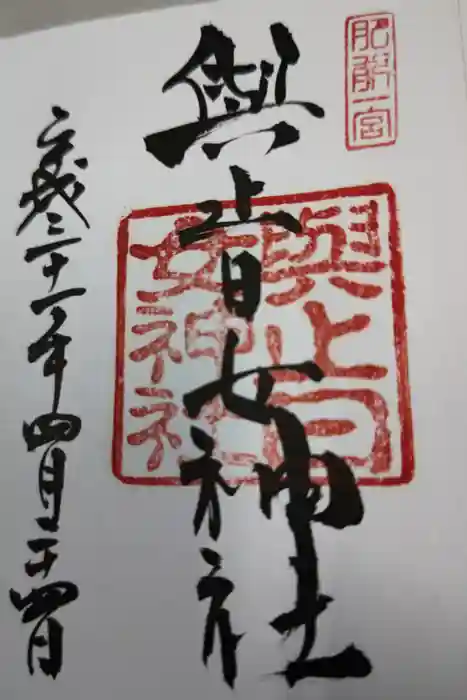 肥前一宮
與止日女神社
與止日
女神社
平成三十一年四月二十四日